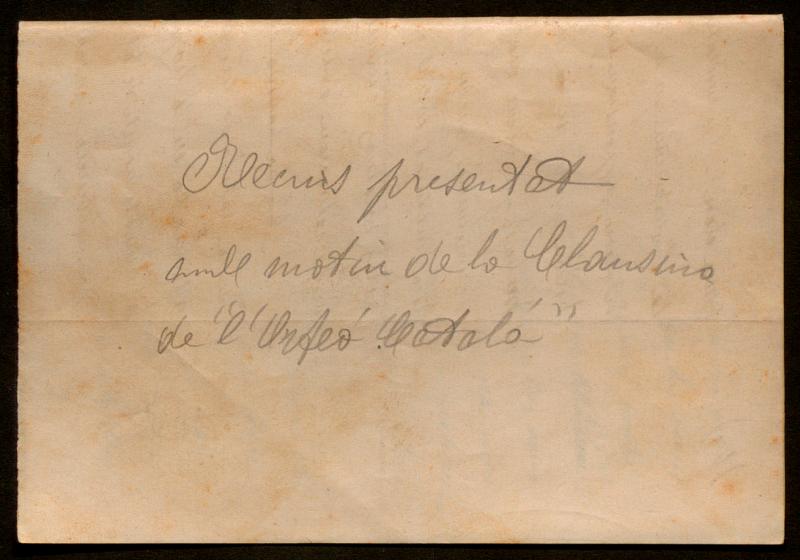 Recurs presentat
amb motiu de la Clausura
de "l'Orfeó Català"